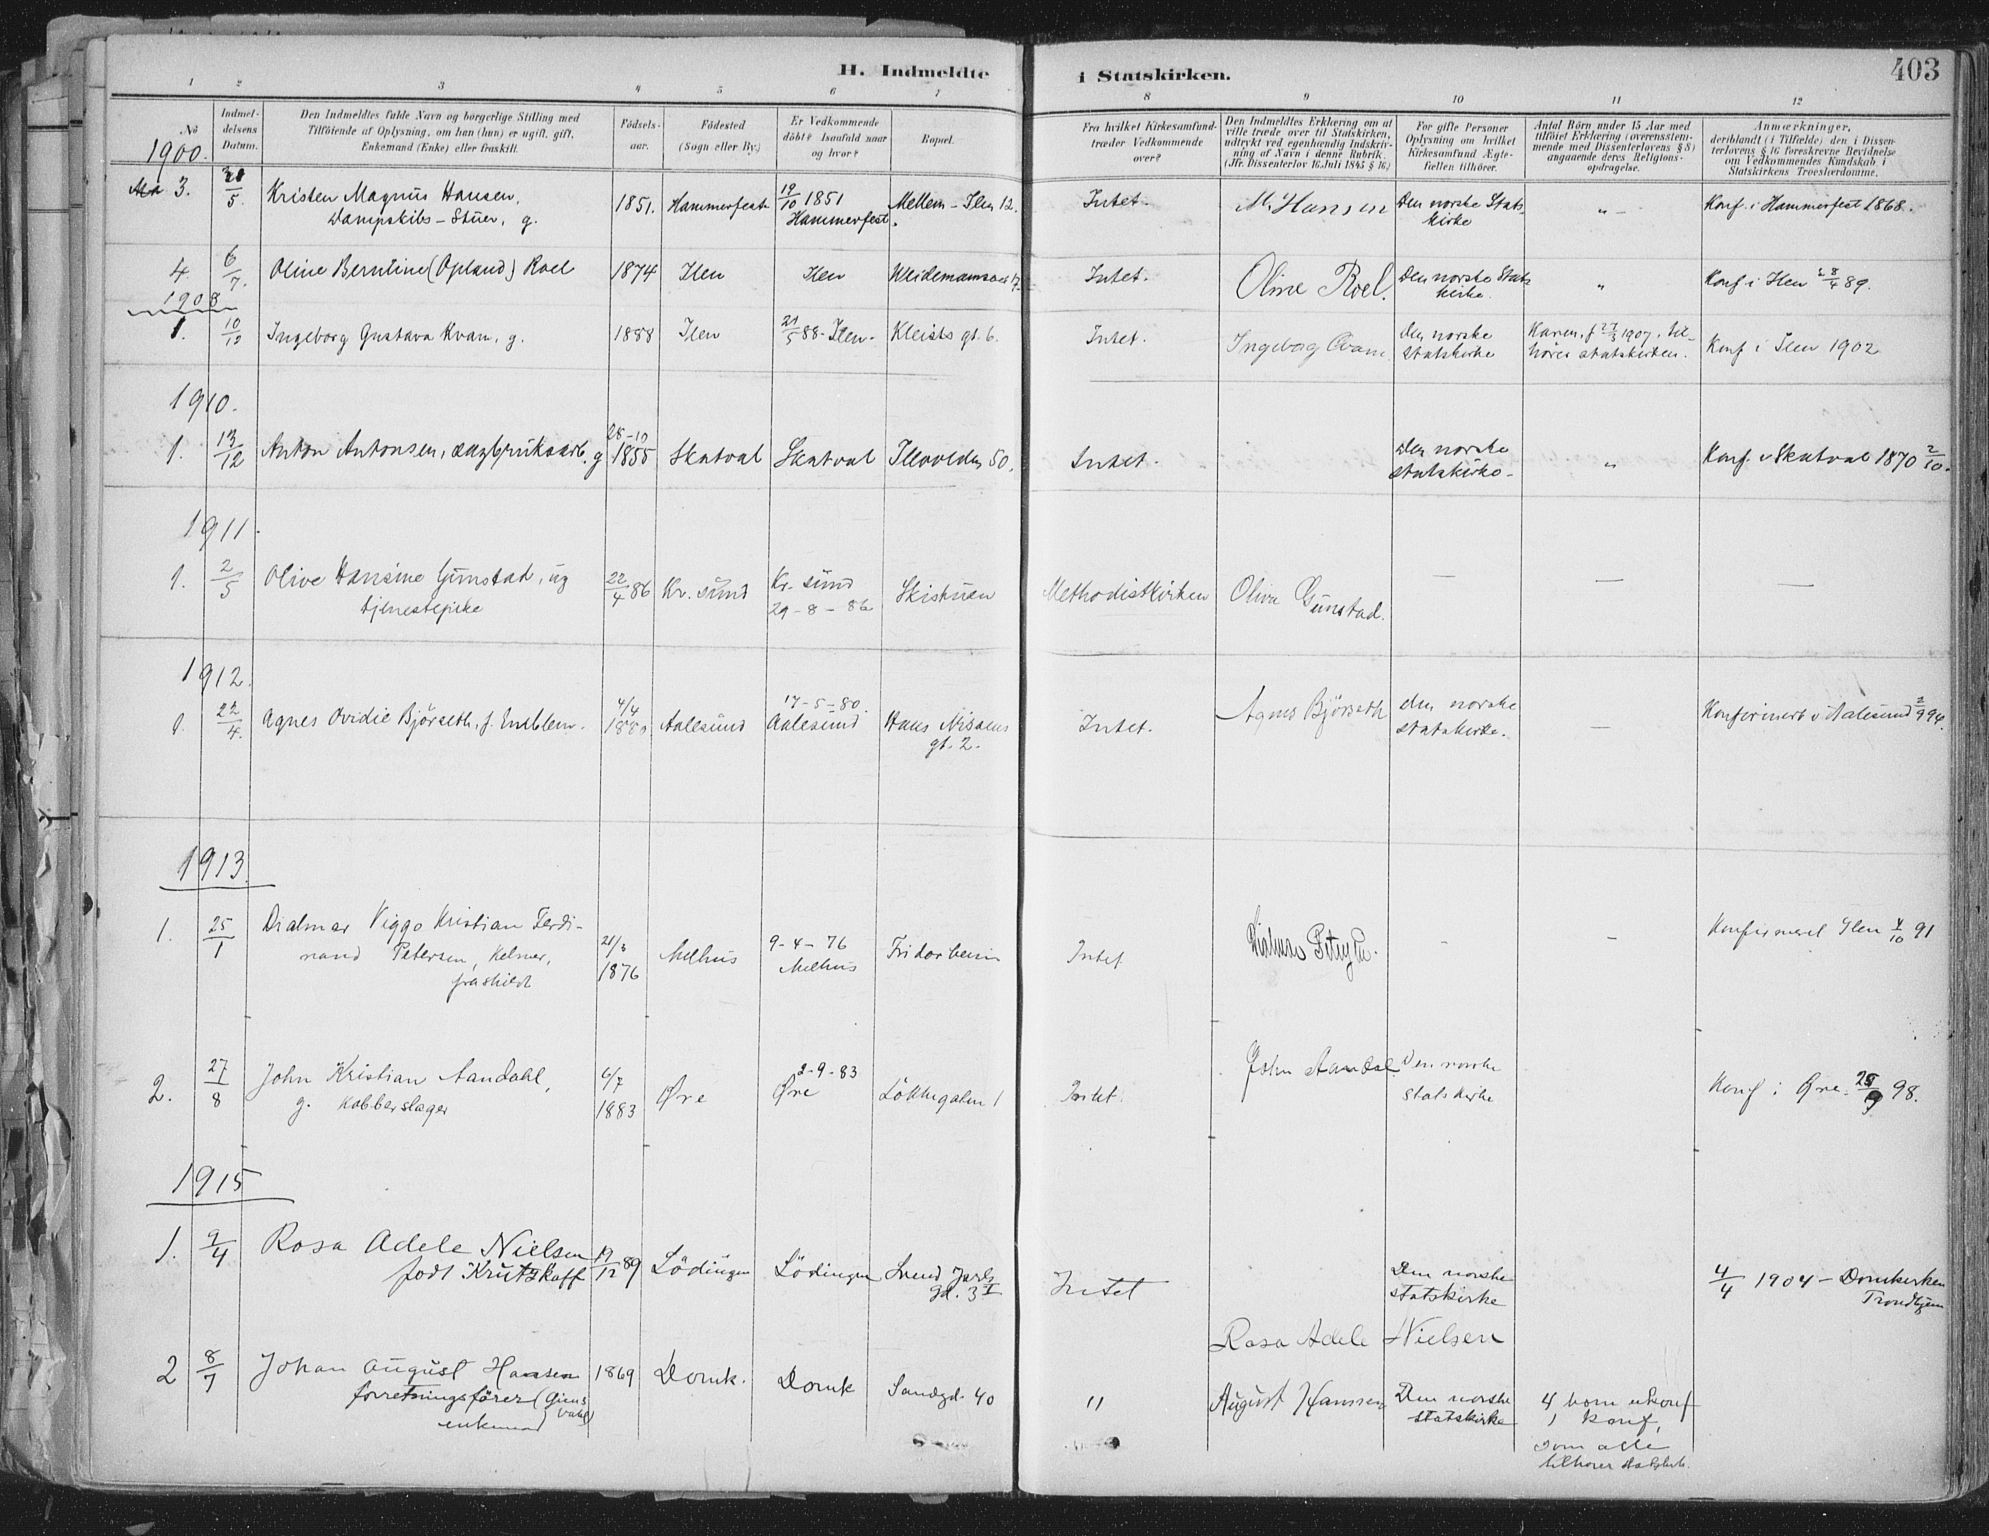 H. Indmeldte i Statskirken. 403
1 2 3 4 5 6 7 8 9 10 11 12
No
Indmel-
delsens
Datum.
Den Indmeldtes fulde Navn og borgerlige Stilling med
Tilföiende af Oplysning, om han (hun) er ugift, gift,
Enkemand (Enke) eller fraskilt.
Födsels-
aar.
Födested
(Sogn eller By.)
Er Vedkommende
döbt? Isaafald naar
og hvor?
Bopæl.
Fra hvilket Kirkesamfund
træder Vedkommende
over?
Den Indmeldtes Erklæring om at
ville træde over til Statskirken,
udtrykt ved egenhændig Indskriv-
ning af Navn i denne Rubrik.
(Jfr. Dissenterlov 16. Juli 1845 § 16.)
For gifte Personer
Oplysning om hvilket
Kirkesamfund Ægte-
fællen tilhörer.
Antal Börn under 15 Aar med
tilföiet Erklæring (overensstem-
mende med Dissenterlovens § 8)
angaaende deres Religions-
opdragelse.
Anmærkninger,
deriblandt (i Tilfælde) den i Dissen-
terlovens § 16 foreskrevne Bevidnelse
om Vedkommendes Kundskab i
Statskirkens Troeslærdomme.
1900.
3. /5. Kristen Magnus Hansen, 1851. Hammerfest 19/10 1851 Mellem-Ilen 12. Intet. M. Hansen Den norske Stats- „ Konf. i Hammerfest 1868.
Dampskibs-Stuer, g. Hammerfest. kirke
4. 6/7. Oline Berntine (Opland) Roel 1874 Ilen Ilen Weidemannsvei 17. Intet. Oline Roel. Den norske Stats „ Konf i Ilen 28/4 89.
kirke.
1908
1. 10/12 Ingeborg Gustava Kvam, g. 1888 Ilen 21/5 88 Ilen. Kleists gt. 6. Intet. Ingeborg Kvam. den norske Karen, f 27/3 1907, til- Konf i Ilen 1902
statskirke hörer statskirken.
1910.
1. 13/12 Anton Antonsen, sagbruksarb. g 28-10 1855 Skatval Skatval Ilevolden 50. Intet. Den norske „ Konf. i Skatval 1870 2/10.
statskirke.
1911.
1. 2/5 Olive Hansine Gunstad, ug 22/4 86 Kr. sund Kr. sund Skistuen Methodistkirken Oliva Gunstad. — — —
tjenestepike 29-8-86
1912.
1. 22/4. Agnes Ovidie Björseth, f. Emblem. 4/4 1880 Aalesund 17-5-80. Aalesund Hans Nissens Intet. Agnes Björseth den norske — Konfirmert i Aalesund 2/9 94.
gt. 2. statskirke.
1913.
1. 25/1 Dialmar Viggo Kristian Ferdi- 9-4-76 Konfirmert Ilen 4/10 91
nand Petersen, Kelner, 1876 Melhus Melhus Fridarheim Intet - -
fraskildt
2. 27/8 John Kristian Aandahl, 6/7 1883 Øre 2-9-83 Øre Løkkegaten 1 Intet. John Aandal. Den norske Konf i Øre 25/9 98.
g. Kobberslager statskirke
1915
1. 9/4 Rosa Adele Nielsen 19/12 89 Lödingen Lödingen Svend Jarls Intet Den norske 4/4 1904 - Domkirken
født Krutzkoff gd. 3 I statskirke Trondhjem
Rosa Adele Nielsen
2 8/7 Johan August Hansen 1869 Domk. Domk Sandgd. 40 11 August Hanssen Den norske 4 barn ukonf
forretningsförer ( statskirke 1 konf,
enkemand) som alle
tilhører statskirk.